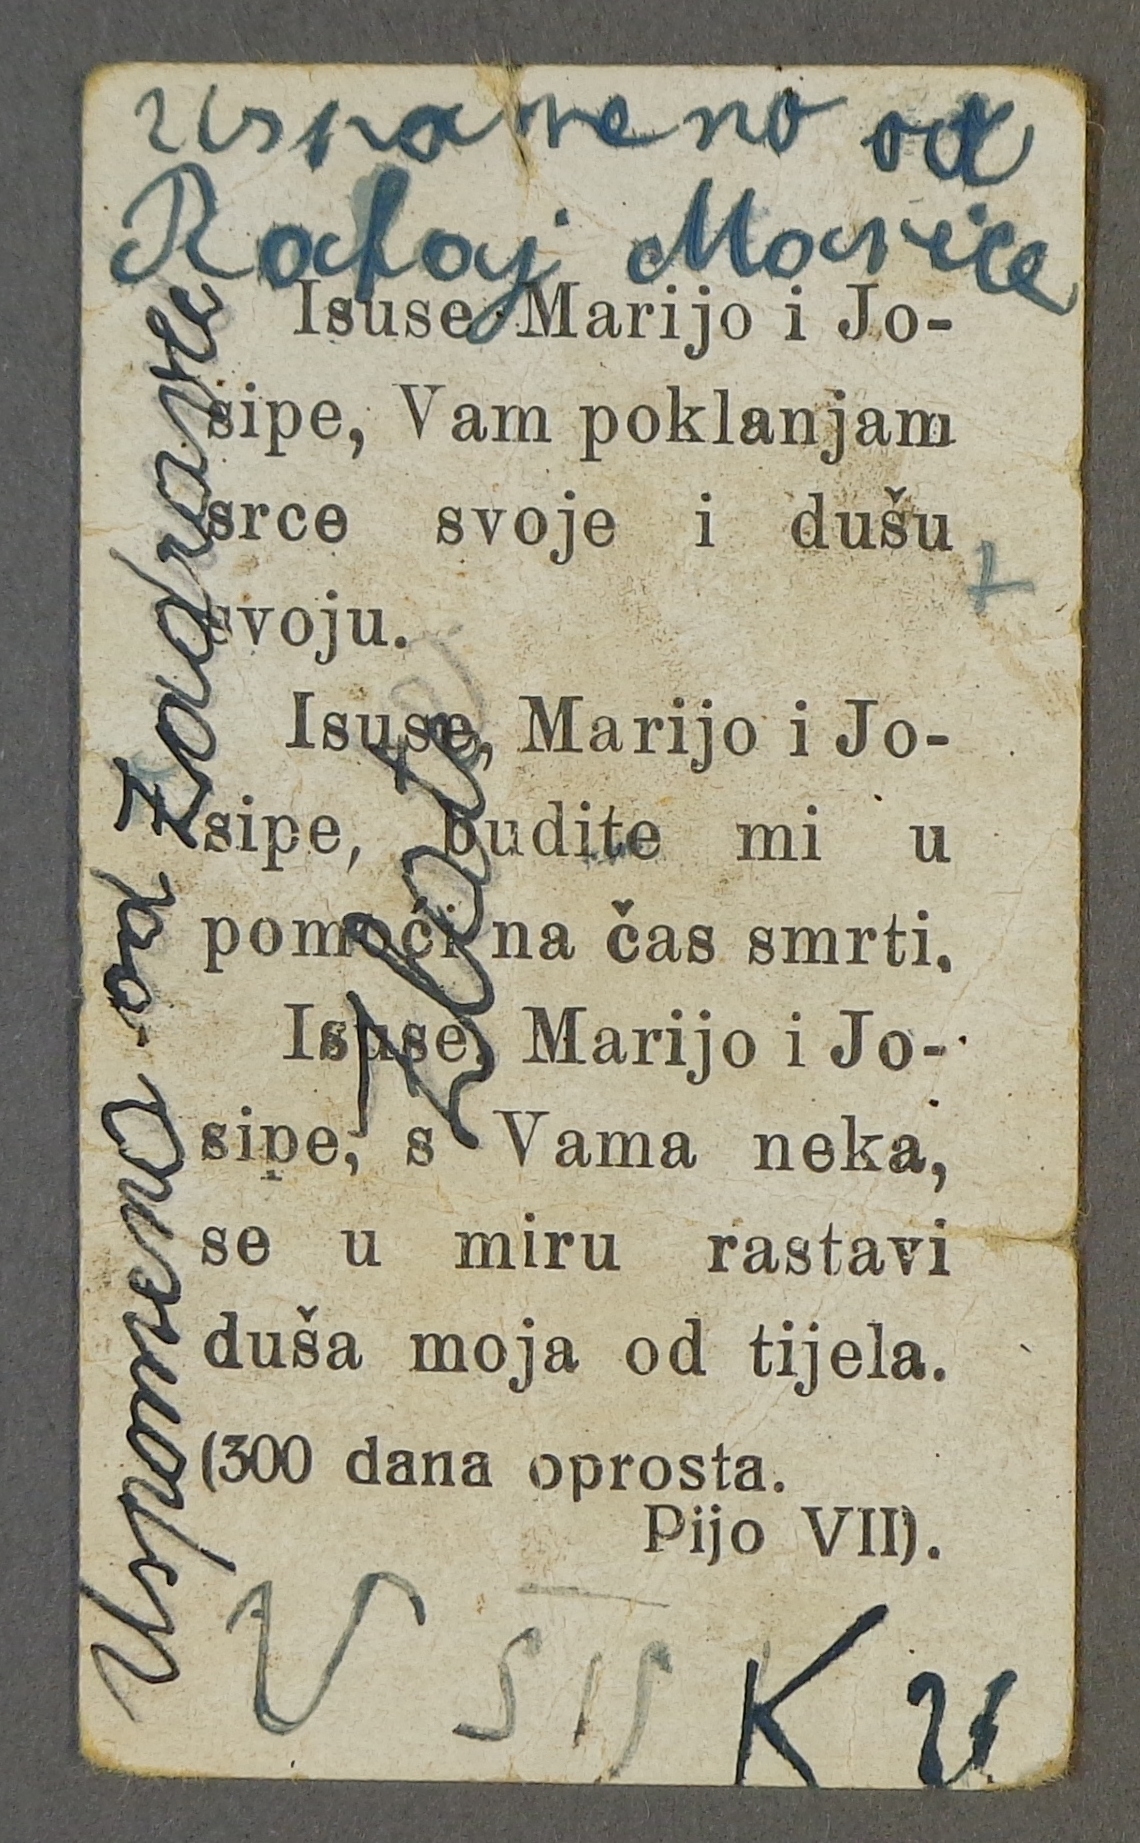 Uspameno od
Rataj Marice
Isuse, Marijo i Jo-
sipe, Vam poklanjam
srce svoje i dušu
svoju.
Isuse, Marijo i Jo-
sipe, budite mi u
pomoći na čas smrti.
Isuse, Marijo i Jo-
sipe, s Vama neka,
se u miru rastavi
duša moja od tijela.
(300 dana oprosta.
Pijo VII).
Uspomena od Zadravec
Zlate